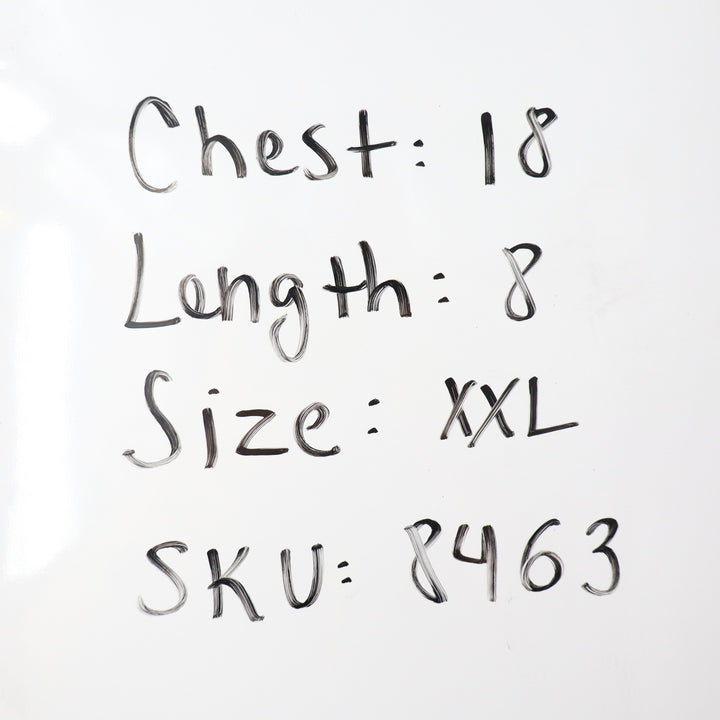 Chest: 18
Length: 8
Size: XXL
SKU: 8463